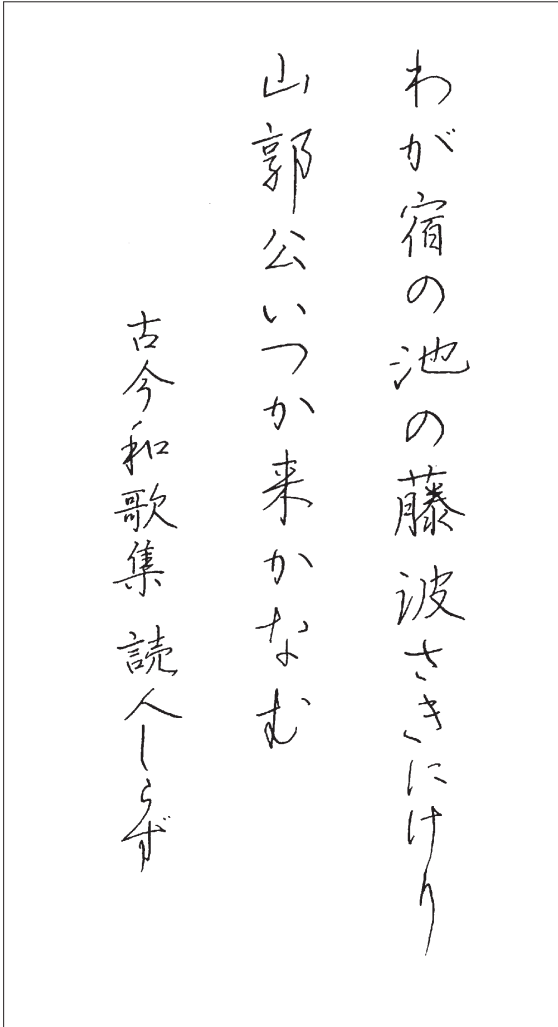 わが宿の池の藤波さきにけり
山郭公いつか来かなむ
古今和歌集 読人しらず